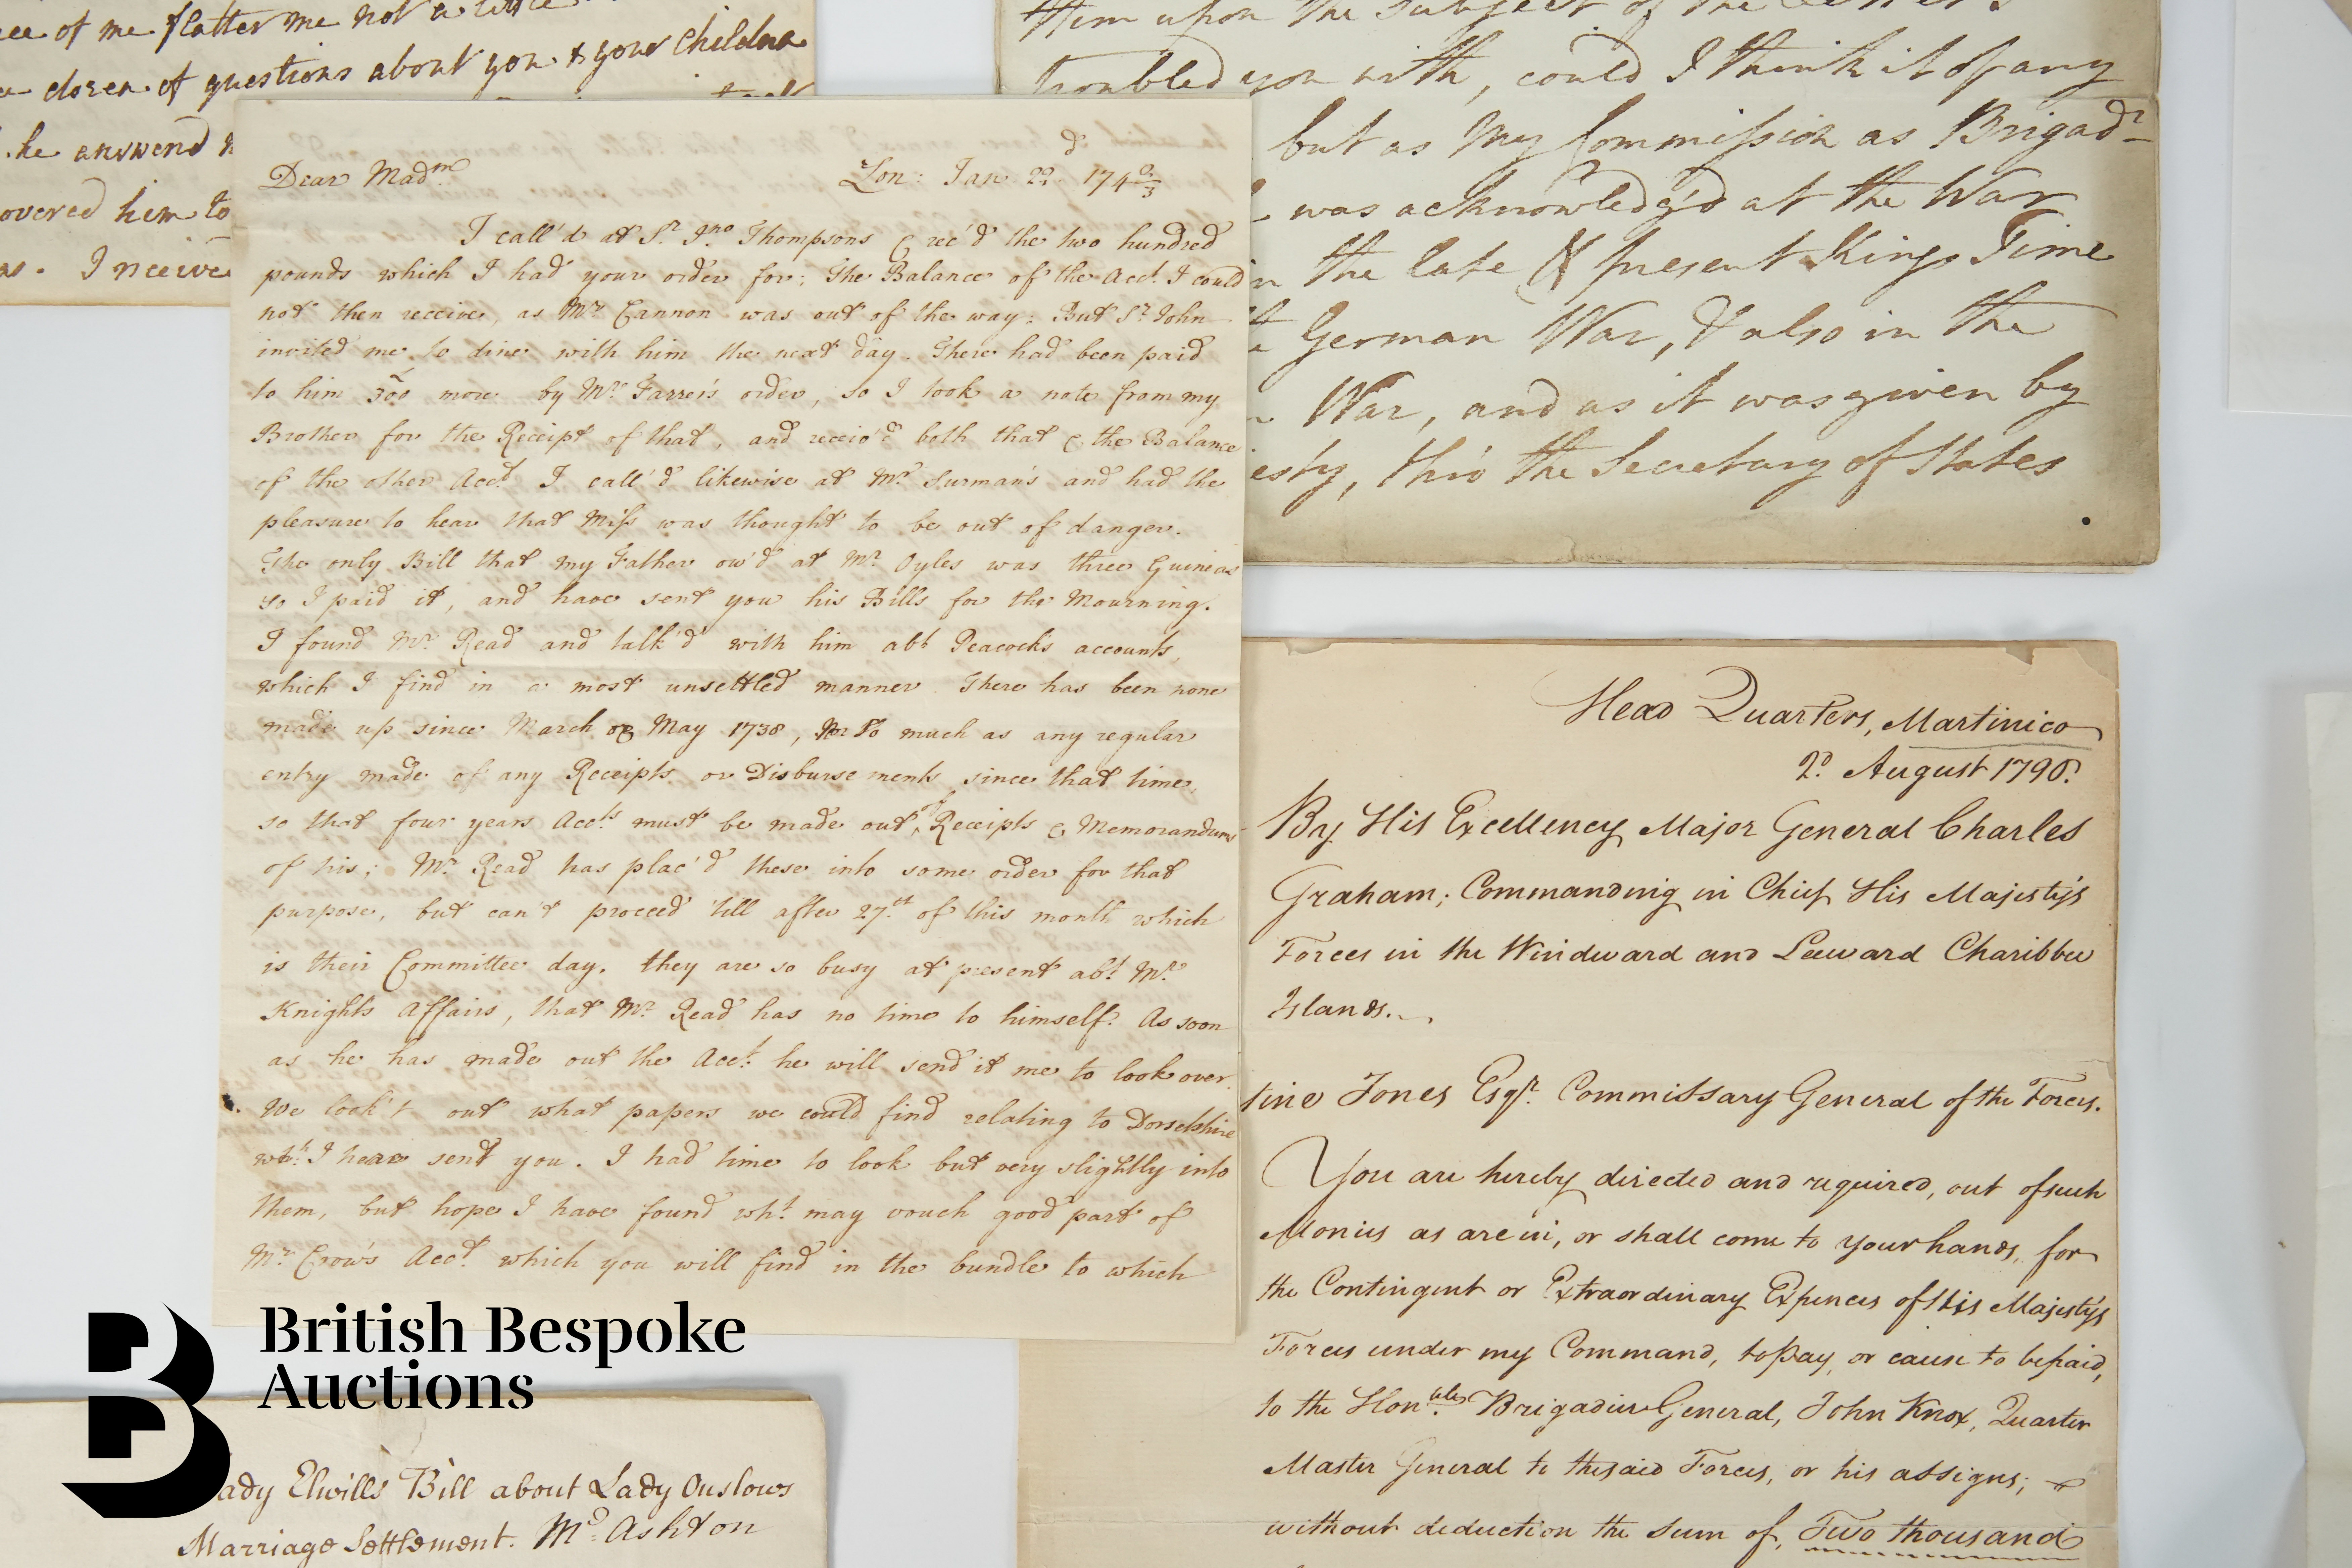 ice of me flatter me not a little
dozen of questions about you & your Children
he answered
overed him to
as. I receive
Dear Madm Lon: Jan 22d. 174 2/3
I call'd at Sr. Jno. Thompsons & rec'd the two hundred
pounds which I had your order for; The Balance of the Acct. I could
not then receive, as Mr. Cannon was out of the way: But Sr. John
invited me to dine with him the next day. There had been paid
to him 300 more by Mr. Farrer's order, so I took a note from my
Brother for the Receipt of that, and receiv'd both that & the Balance
of the other Acct. I call'd likewise at Mr. Surman's and had the
pleasure to hear that Miss was thought to be out of danger.
The only Bill that my Father ow'd at Mr. Oyles was three Guineas
so I paid it, and have sent you his Bills for the Mourning.
I found Mr. Read and talk'd with him abt. Peacock's accounts,
which I find in a most unsettled manner. There has been none
made up since March or May 1738, Nor so much as any regular
entry made of any Receipts or Disbursements since that time,
so that four years Accts. must be made out, Receipts & Memorandums
of his; Mr. Read has plac'd these into some order for that
purpose, but can't proceed 'till after 27th. of this month which
is their Committee day. they are so busy at present abt. Mr.
Knight's Affairs, that Mr. Read has no time to himself. As soon
as he has made out the Acct. he will send it me to look over.
We look't out what papers we could find relating to Dorsetshire
wch. I have sent you. I had time to look but very slightly into
them, but hope I have found wht. may vouch good part of
Mr. Crow's Acct. which you will find in the bundle to which
them upon the subject of the
troubled you with, could I think it of any
but as My Commission as Brigadr
was acknowledg'd at the War
the late & present Kings Time
German War, & also in the
War, and as it was given by
esty, thro' the Secretary of States
Head Quarters, Martinico
2d. August 1796.
By His Excellency Major General Charles
Graham; Commanding in Chief His Majesty's
Forces in the Windward and Leeward Charibbee
Islands.
tine Jones Esqr. Commissary General of the Forces.
You are hereby directed and required, out of such
Monies as are in, or shall come to your hands, for
the Contingent or Extraordinary Expences of His Majesty's
Forces under my Command, to pay, or cause to be paid,
to the Honble. Brigadier General, John Knox, Quarter
Master General to the said Forces, or his assigns;
without deduction the Sum of, Two thousand
B British Bespoke
Auctions
ady Elwills Bill about Lady Onslows
Marriage Settlement. Mr. Ashton